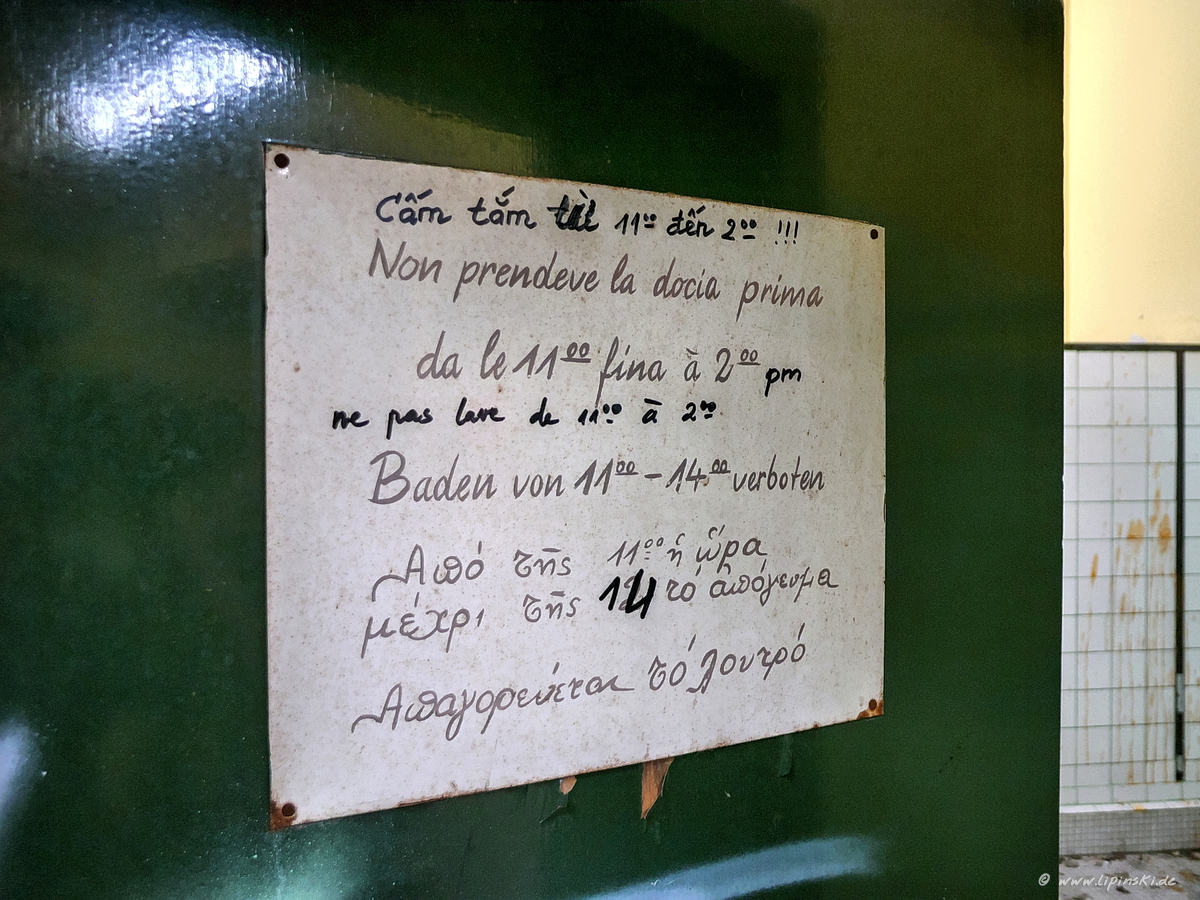 Cấm tắm từ 11⁰⁰ đến 2⁰⁰ !!!
Non prendeve la docia prima
da le 11⁰⁰ fina à 2⁰⁰ pm
ne pas lave de 11⁰⁰ à 2⁰⁰
Baden von 11⁰⁰ - 14⁰⁰ verboten
Ἀπό τῆς 11⁰⁰ ἡ ὥρα
μέχρι τῆς 14 τό ἀπόγευμα
Ἀπαγορεύεται τό λουτρό
© www.lipinski.de